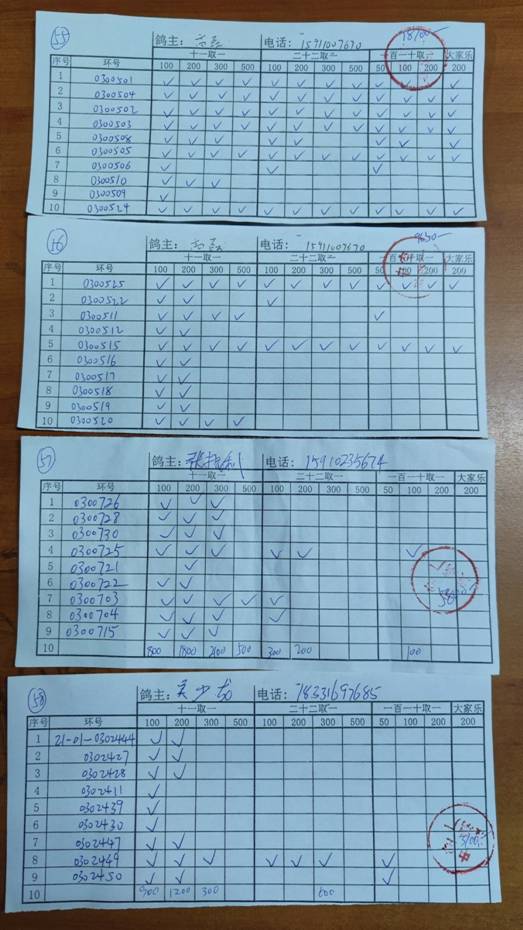 55 鸽主: 高磊 电话: 15911007670 18700
序号 环号 十一取一 二十二取二 一百一十取一 大家乐
100 200 300 500 100 200 300 500 50 100 200 200
1 0300501 ✓ ✓ ✓ ✓ ✓ ✓ ✓ ✓ ✓ ✓ ✓ ✓
2 0300504 ✓ ✓ ✓ ✓ ✓ ✓ ✓ ✓ ✓ ✓ ✓ ✓
3 0300502 ✓ ✓ ✓ ✓ ✓ ✓ ✓ ✓ ✓ ✓ ✓ ✓
4 0300503 ✓ ✓ ✓ ✓ ✓ ✓ ✓ ✓ ✓ ✓ ✓ ✓
5 0300508 ✓ ✓ ✓ ✓ ✓ ✓ ✓
6 0300505 ✓ ✓ ✓ ✓ ✓ ✓ ✓ ✓ ✓ ✓ ✓ ✓
7 0300506 ✓ ✓ ✓
8 0300510 ✓ ✓ ✓
9 0300509 ✓
10 0300524 ✓ ✓ ✓ ✓ ✓ ✓ ✓ ✓ ✓ ✓ ✓ ✓
鸽主: 电话: 15911007670
序号 环号 十一取一 二十二取二 一百一十取一 大家乐
100 200 300 500 100 200 300 500 50 100 200 200
1 0300525 ✓ ✓ ✓ ✓ ✓ ✓ ✓ ✓ ✓ ✓ ✓ ✓
2 0300522 ✓ ✓ ✓
3 0300511 ✓ ✓ ✓ ✓ ✓
4 0300512 ✓ ✓
5 0300515 ✓ ✓ ✓ ✓ ✓ ✓ ✓ ✓ ✓ ✓ ✓ ✓
6 0300516 ✓ ✓
7 0300517 ✓ ✓
8 0300518 ✓ ✓
9 0300519 ✓ ✓
10 0300520 ✓ ✓ ✓ ✓
57 鸽主: 电话: 15910235674
序号 环号 十一取一 二十二取二 一百一十取一 大家乐
100 200 300 500 100 200 300 500 50 100 200 200
1 0300726 ✓ ✓ ✓
2 0300728 ✓ ✓ ✓
3 0300730 ✓ ✓ ✓
4 0300725 ✓ ✓ ✓ ✓ ✓ ✓
5 0300721 ✓
6 0300722 ✓ ✓
7 0300703 ✓ ✓ ✓ ✓ ✓
8 0300704 ✓ ✓ ✓ ✓
9 0300715 ✓ ✓ ✓
10 800 1800 2100 500 300 200 100
58 鸽主: 吴少龙 电话: 18331697685
序号 环号 十一取一 二十二取二 一百一十取一 大家乐
100 200 300 500 100 200 300 500 50 100 200 200
1 21-01-0302444 ✓ ✓
2 0302427 ✓ ✓
3 0302428 ✓ ✓
4 0302411 ✓
5 0302439 ✓
6 0302430 ✓
7 0302447 ✓ ✓
8 0302449 ✓ ✓ ✓ ✓ ✓ ✓ ✓
9 0302450 ✓ ✓ ✓
10 900 1200 300 600